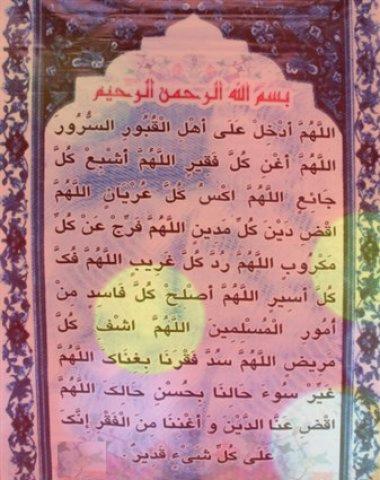 بسم الله الرحمن الرحیم
اَللّهُمَّ اَدْخِلْ عَلَى اَهْلِ الْقُبُورِ السُّرُورَ
اَللّهُمَّ اَغْنِ كُلَّ فَقيرٍ اَللّهُمَّ اَشْبِعْ كُلَّ
جائِعٍ اَللّهُمَّ اكْسُ كُلَّ عُرْيانٍ اَللّهُمَّ
اقْضِ دَيْنَ كُلِّ مَدينٍ اَللّهُمَّ فَرِّجْ عَنْ كُلِّ
مَكْرُوبٍ اَللّهُمَّ رُدَّ كُلَّ غَريبٍ اَللّهُمَّ فُكَّ
كُلَّ اَسيرٍ اَللّهُمَّ اَصْلِحْ كُلَّ فاسِدٍ مِنْ
اُمُورِ الْمُسْلِمينَ اَللّهُمَّ اشْفِ كُلَّ
مَريضٍ اَللّهُمَّ سُدَّ فَقْرَنا بِغِناكَ اَللّهُمَّ
غَيِّرْ سُوءَ حالِنا بِحُسْنِ حالِكَ اَللّهُمَّ
اقْضِ عَنَّا الدَّيْنَ وَ اَغْنِنا مِنَ الْفَقْرِ اِنَّكَ
عَلى كُلِّ شَىْءٍ قَديرٌ.